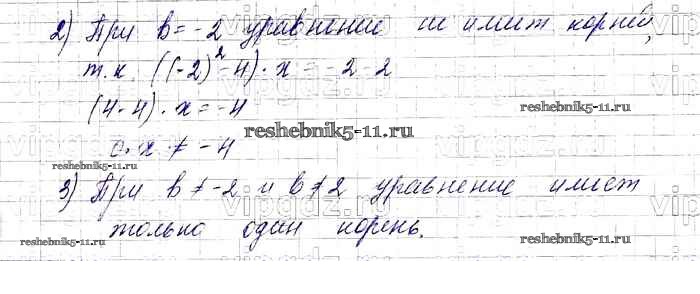 2) При b = -2 уравнение не имеет корней,
т.к. ((-2)² - 4) · x = -2 - 2
(4 - 4) · x = -4
reshebnik5-11.ru
reshebnik5-11.ru
0 · x ≠ -4
reshebnik5-11.ru
3) При b ≠ -2 и b ≠ 2 уравнение имеет
только один корень.
reshebnik5-11.ru
reshebnik5-11.ru